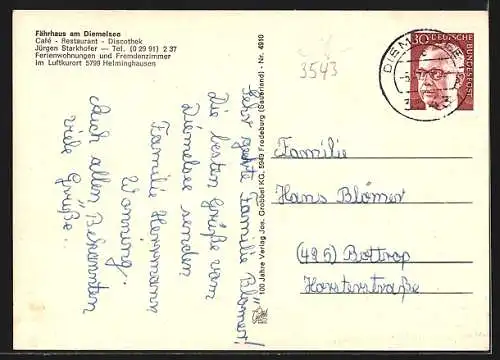 Fährhaus am Diemelsee
Café - Restaurant - Discothek
Jürgen Starkhofer — Tel. (0 29 91) 2 37
Ferienwohnungen und Fremdenzimmer
im Luftkurort 5799 Helminghausen
Sehr geehrte Familie Blömer!
Die besten Grüße vom
Diemelsee senden
Familie Herrmann
Worring.
Auch allen "Bekannten"
viele Grüße.
100 Jahre Verlag Jos. Grobbel KG, 5949 Fredeburg (Sauerland) - Nr. 4910
3543
30
DEUTSCHE
BUNDESPOST
DIEM
Familie
Hans Blömer
(495) Bottrop
Horsterstraße